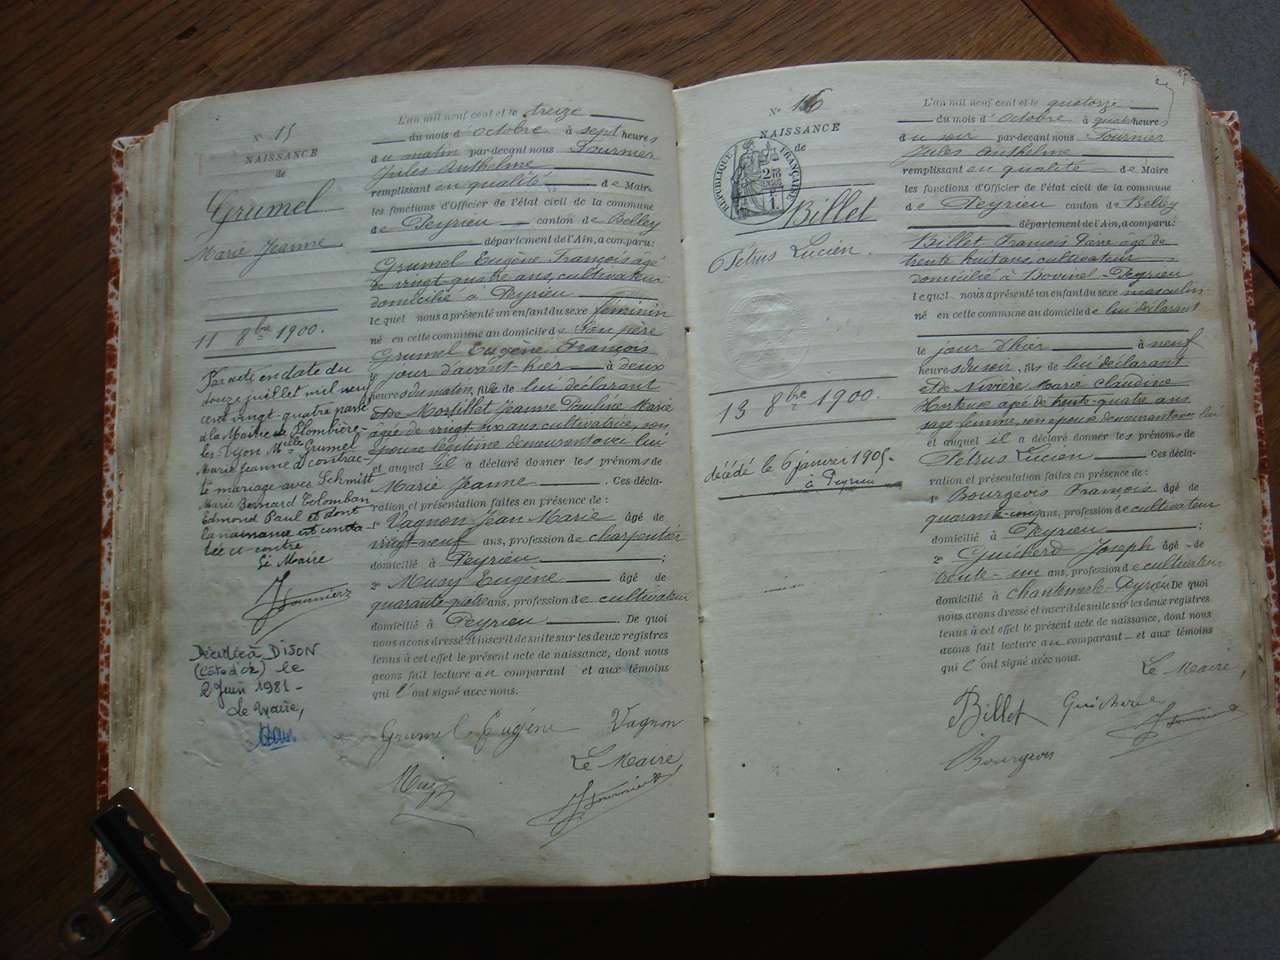 N° 15
NAISSANCE
de
Grumel
Marie Jeanne
11 8bre 1900.
Par acte en date du
douze juillet mil neuf
cent vingt-quatre passé
à la Mairie de Plombière-
les-Dijon Melle Grumel
Marie Jeanne a contrac
té mariage avec Schmitt
Marie Bernard Colomban
Edmond Paul et dont
la naissance est consta
tée ci-contre
Le Maire
J Fournier
Décédée à DIJON
(Côte d'Or) le
2 Juin 1981-
Le Maire,
L'an mil neuf cent et le treize
du mois d'Octobre à sept heures
du matin par-devant nous Fournier
Jules Anthelme
remplissant en qualité de Maire
les fonctions d'Officier de l'état civil de la commune
de Peyrieu canton de Belley
département de l'Ain, a comparu:
Grumel Eugène François âgé
de vingt-quatre ans, cultivateur
domicilié à Peyrieu
lequel nous a présenté un enfant du sexe féminin
né en cette commune au domicile de son père
Grumel Eugène François
le jour d'avant-hier à deux
heures du matin, fils de lui déclarant
et de Morfillet Jeanne Pauline Marie
âgée de vingt six ans cultivatrice, son
épouse légitime demeurant avec lui
et auquel il a déclaré donner les prénoms de
Marie Jeanne Ces décla-
ration et présentation faites en présence de:
1° Vagnon Jean Marie âgé de
vingt-neuf ans, profession de charpentier
domicilié à Peyrieu ;
2° Musy Eugène âgé de
quarante quatre ans, profession de cultivateur
domicilié à Peyrieu. De quoi
nous avons dressé et inscrit de suite sur les deux registres
tenus à cet effet le présent acte de naissance, dont nous
avons fait lecture au comparant et aux témoins
qui l'ont signé avec nous.
Grumel Eugène Vagnon
Le Maire
Musy J Fournier
N° 16
NAISSANCE
de
RÉPUBLIQUE FRANÇAISE
Billet
Pétrus Lucien.
13 8bre 1900.
décédé le 6 janvier 1905.
à Peyrieu
L'an mil neuf cent et le quatorze
du mois d'Octobre à quatre heures
du soir par-devant nous Fournier
Jules Anthelme
remplissant en qualité de Maire
les fonctions d'Officier de l'état civil de la commune
de Peyrieu canton de Belley
département de l'Ain, a comparu:
Billet François Pierre âgé de
trente huit ans, cultivateur
domicilié à Bovinel-Peyrieu
lequel nous a présenté un enfant du sexe masculin
né en cette commune au domicile de lui déclarant
le jour d'hier à neuf
heures du soir, fils de lui déclarant
et de Nivière Marie Claudine
Hortense âgé de trente-quatre ans
sage femme, son épouse demeurant avec lui
et auquel il a déclaré donner les prénoms de
Pétrus Lucien Ces décla-
ration et présentation faites en présence de:
1° Bourgeois François âgé de
quarante-cinq ans, profession de cultivateur
domicilié à Peyrieu ;
2° Guicherd Joseph âgé de
trente-un ans, profession de cultivateur
domicilié à Chantemerle-Peyrieu De quoi
nous avons dressé et inscrit de suite sur les deux registres
tenus à cet effet le présent acte de naissance, dont nous
avons fait lecture au comparant et aux témoins
qui l'ont signé avec nous.
Le Maire,
Billet Guicherd
Bourgeois J Fournier